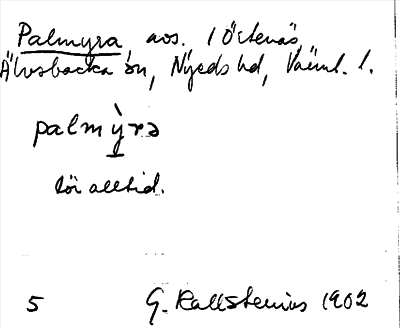 Palmyra, avs. i Östenäs,
Älvsbacka sn, Nyeds hd, Värml. l.
palmỳ̱rə
för alltid.
5 G. Kallstenius 1902